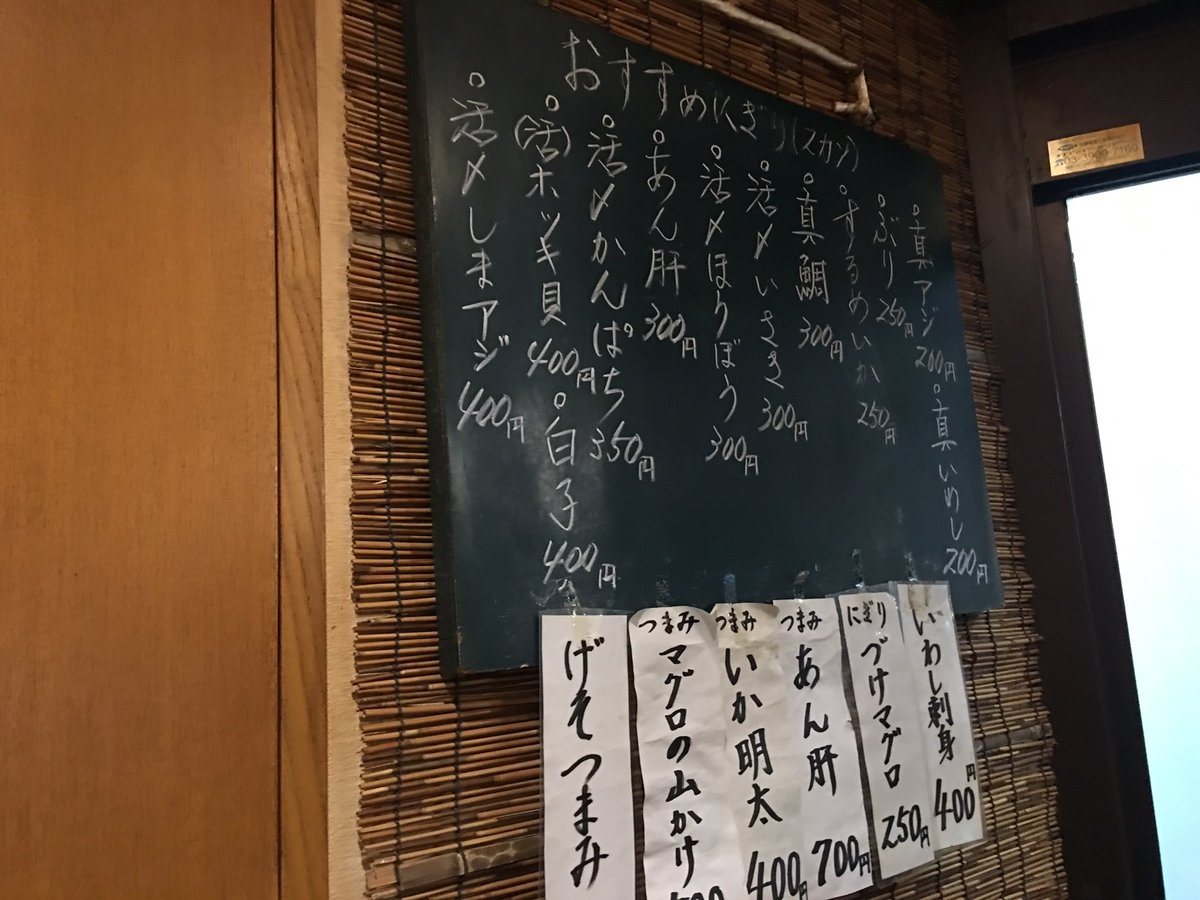 おすすめにぎり(スカソ)
○真アジ 200円
○真いわし 200円
○ぶり 250円
○するめいか 250円
○真鯛 300円
○活〆いさき 300円
○活〆ほうぼう 300円
○あん肝 300円
○活〆かんぱち 350円
○(活)ホッキ貝 400円
○白子 400円
○活〆しまアジ 400円
いわし刺身 400円
にぎり
づけマグロ 250円
つまみ
あん肝 700円
つまみ
いか明太 400円
つまみ
マグロの山かけ
げそつまみ